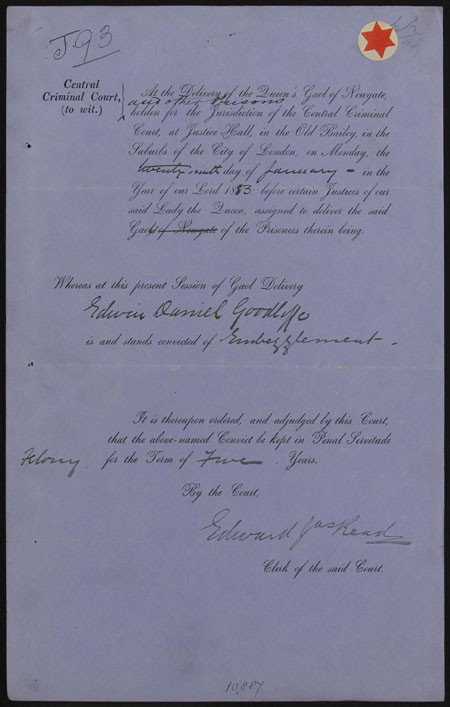 J.93
Central
Criminal Court,
(to wit.)
At the Delivery of the Queen's Gaol of Newgate,
and other Prisons
holden for the Jurisdiction of the Central Criminal
Court, at Justice Hall, in the Old Bailey, in the
Suburbs of the City of London, on Monday, the
twenty ninth day of January - in the
Year of our Lord 1883 before certain Justices of our
said Lady the Queen, assigned to deliver the said
Gaols of Newgate of the Prisoners therein being.
Whereas at this present Session of Gaol Delivery
Edwin Daniel Goodliffe
is and stands convicted of Embezzlement.
It is thereupon ordered, and adjudged by this Court,
that the above-named Convict be kept in Penal Servitude
Felony. for the Term of Five Years.
By the Court,
Edward Jas Read
Clerk of the said Court.
10,887